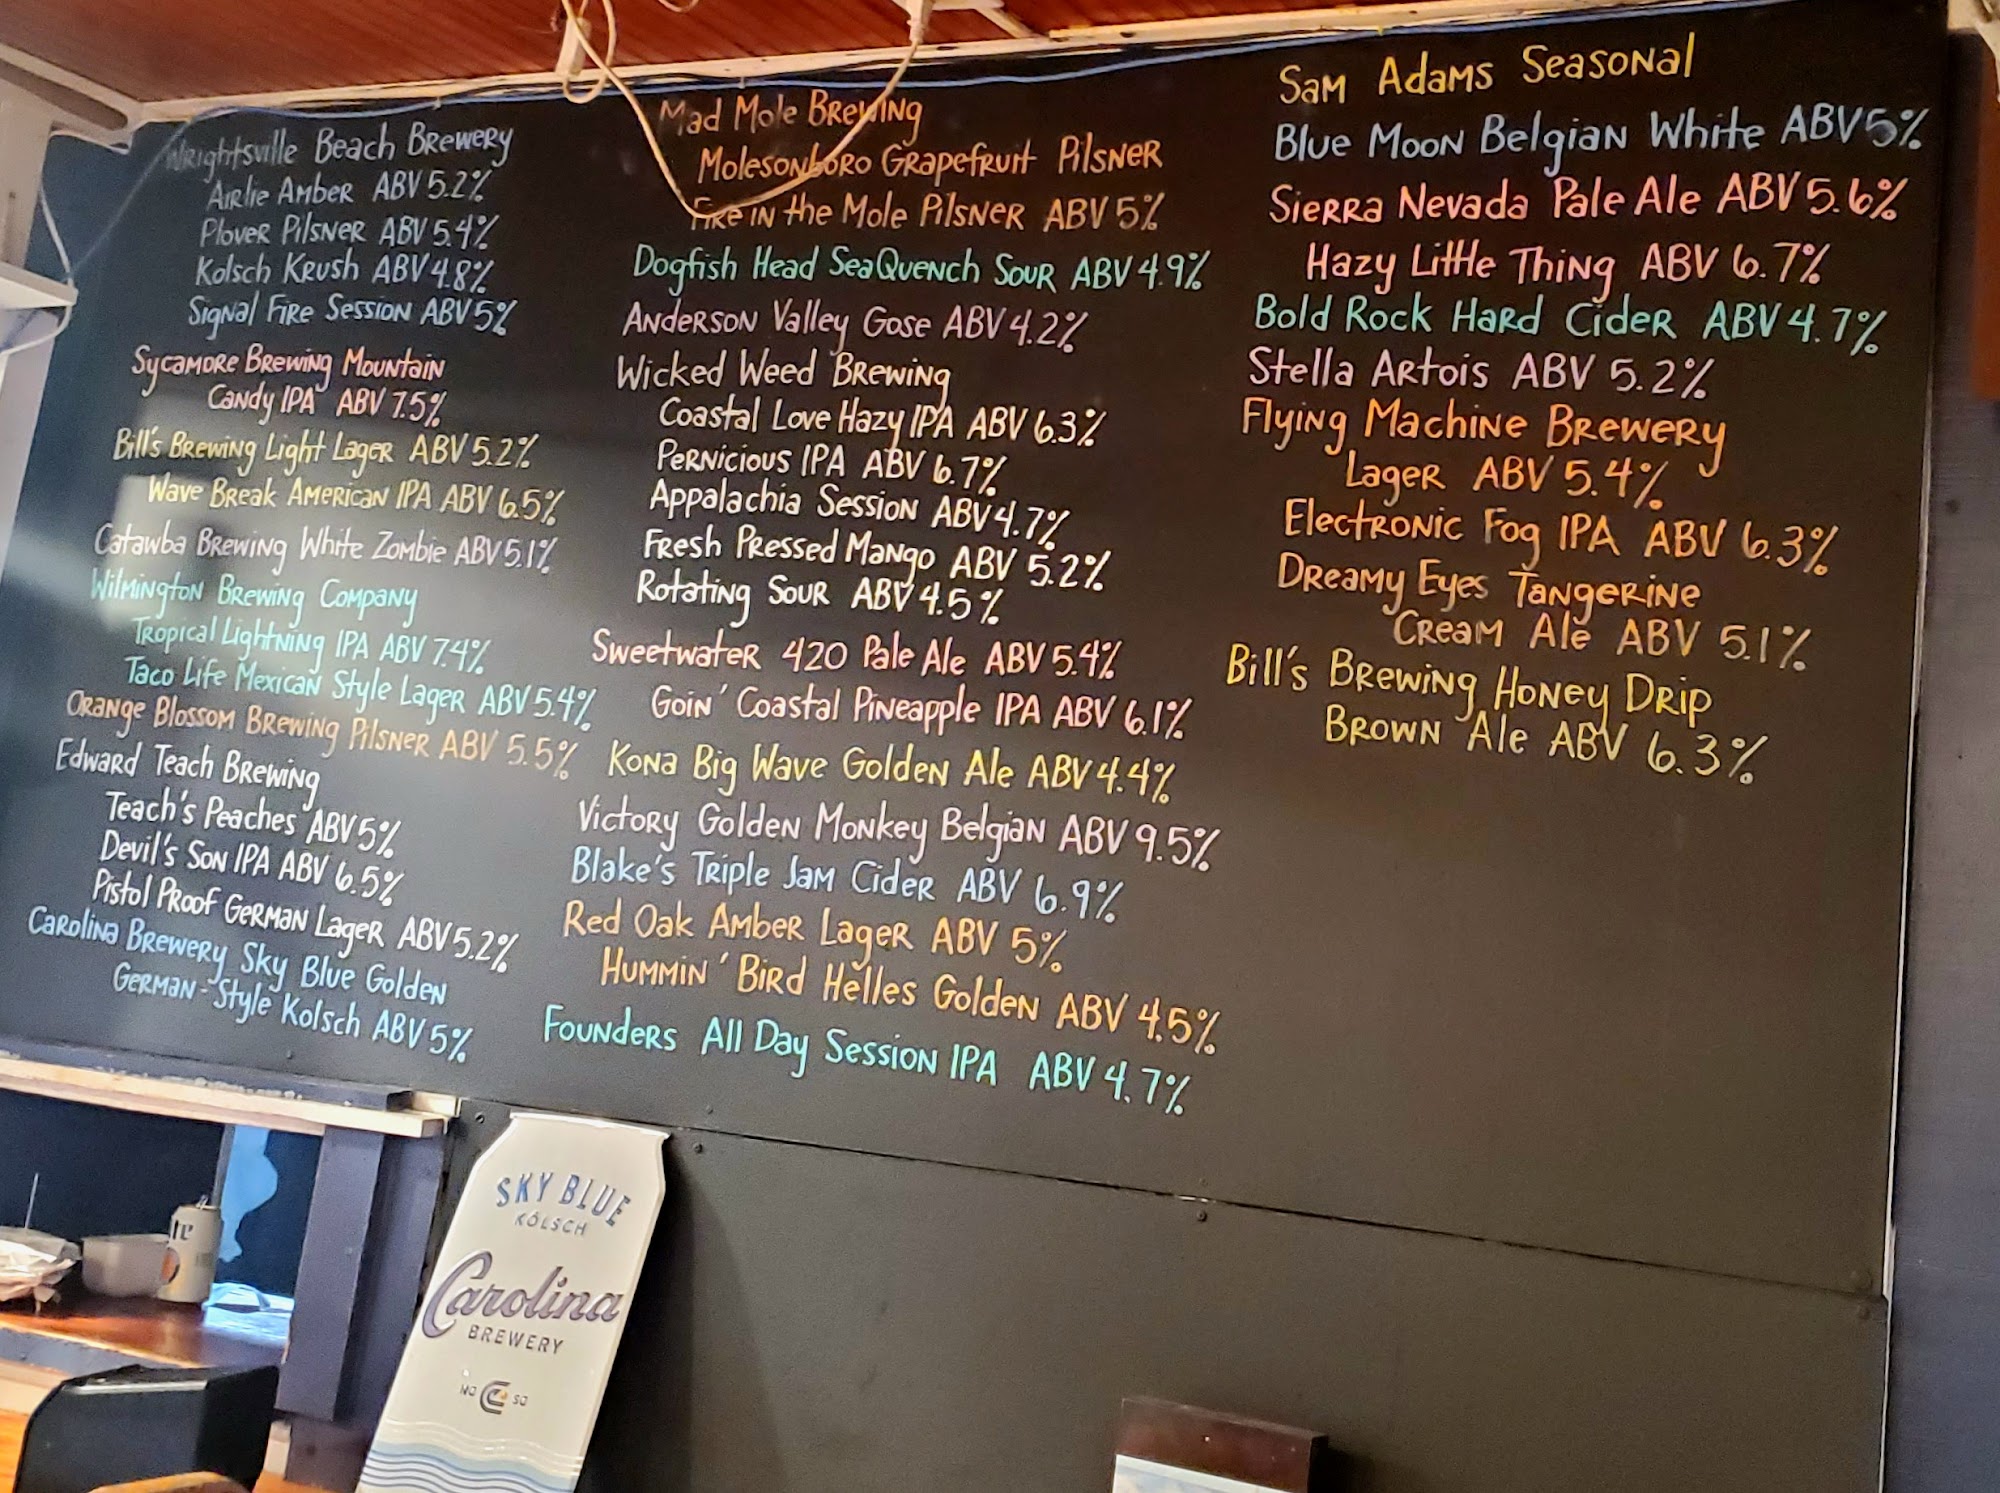 Wrightsville Beach Brewery
Airlie Amber ABV 5.2%
Plover Pilsner ABV 5.4%
Kolsch Krush ABV 4.8%
Signal Fire Session ABV 5%
Sycamore Brewing Mountain
Candy IPA ABV 7.5%
Bill's Brewing Light Lager ABV 5.2%
Wave Break American IPA ABV 6.5%
Catawba Brewing White Zombie ABV 5.1%
Wilmington Brewing Company
Tropical Lightning IPA ABV 7.4%
Taco Life Mexican Style Lager ABV 5.4%
Orange Blossom Brewing Pilsner ABV 5.5%
Edward Teach Brewing
Teach's Peaches ABV 5%
Devil's Son IPA ABV 6.5%
Pistol Proof German Lager ABV 5.2%
Carolina Brewery Sky Blue Golden
German-Style Kolsch ABV 5%
Mad Mole Brewing
Molesonboro Grapefruit Pilsner
Fire in the Mole Pilsner ABV 5%
Dogfish Head SeaQuench Sour ABV 4.9%
Anderson Valley Gose ABV 4.2%
Wicked Weed Brewing
Coastal Love Hazy IPA ABV 6.3%
Pernicious IPA ABV 6.7%
Appalachia Session ABV 4.7%
Fresh Pressed Mango ABV 5.2%
Rotating Sour ABV 4.5%
Sweetwater 420 Pale Ale ABV 5.4%
Goin' Coastal Pineapple IPA ABV 6.1%
Kona Big Wave Golden Ale ABV 4.4%
Victory Golden Monkey Belgian ABV 9.5%
Blake's Triple Jam Cider ABV 6.9%
Red Oak Amber Lager ABV 5%
Hummin' Bird Helles Golden ABV 4.5%
Founders All Day Session IPA ABV 4.7%
Sam Adams Seasonal
Blue Moon Belgian White ABV 5%
Sierra Nevada Pale Ale ABV 5.6%
Hazy Little Thing ABV 6.7%
Bold Rock Hard Cider ABV 4.7%
Stella Artois ABV 5.2%
Flying Machine Brewery
Lager ABV 5.4%
Electronic Fog IPA ABV 6.3%
Dreamy Eyes Tangerine
Cream Ale ABV 5.1%
Bill's Brewing Honey Drip
Brown Ale ABV 6.3%
SKY BLUE
KÖLSCH
Carolina
BREWERY